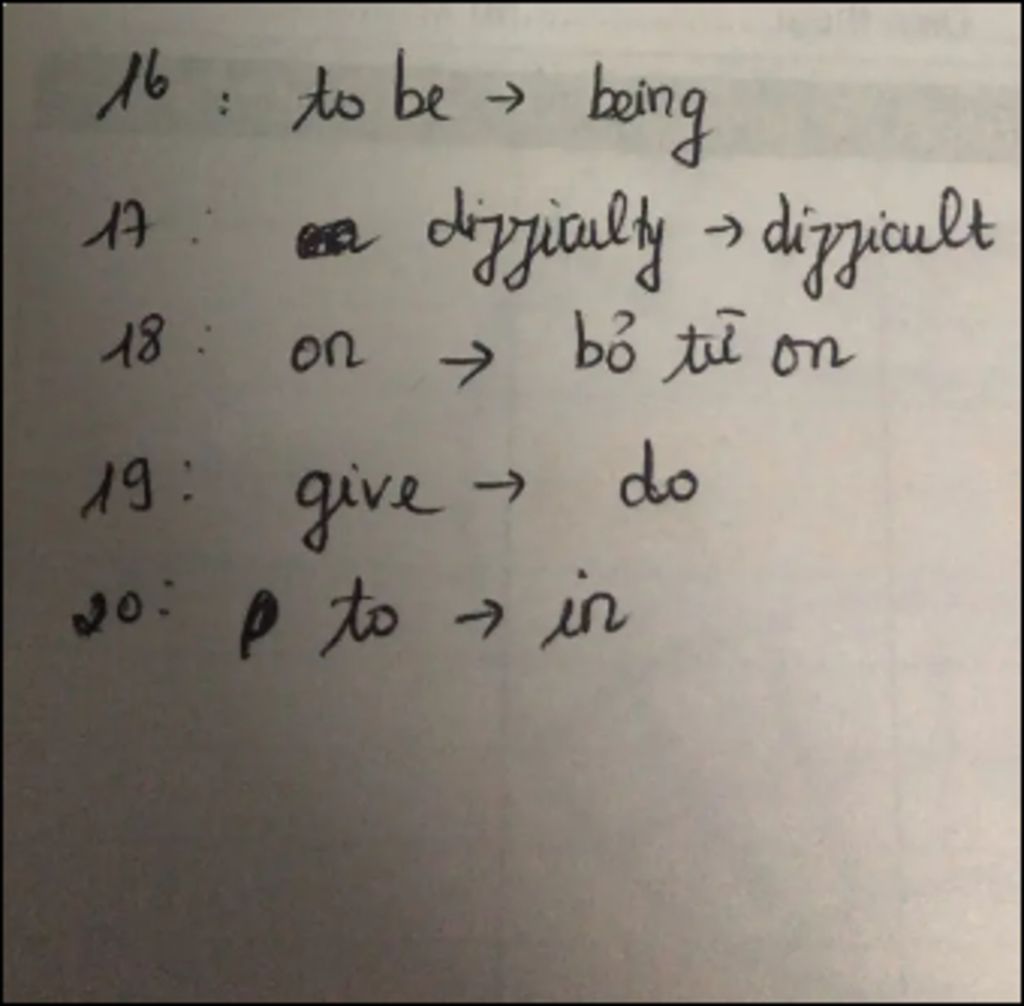 16 : to be → being
17 : difficulty → difficult
18 : on → bỏ từ on
19 : give → do
20 : to → in